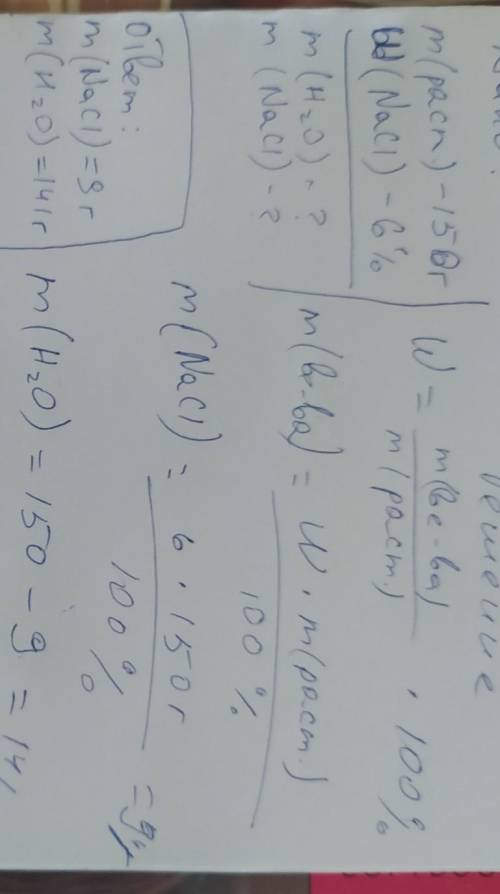 Решение
m(расп.) - 150г
W(NaCl) - 6%
m(H₂O) - ?
m(NaCl) - ?
W = m(ве-ва) / m(раст.) · 100%
m(ве-ва) = W · m(раст.) / 100%
m(NaCl) = 6 · 150г / 100% = 9г
m(H₂O) = 150 - 9 = 141
Ответ:
m(NaCl) = 9г
m(H₂O) = 141г